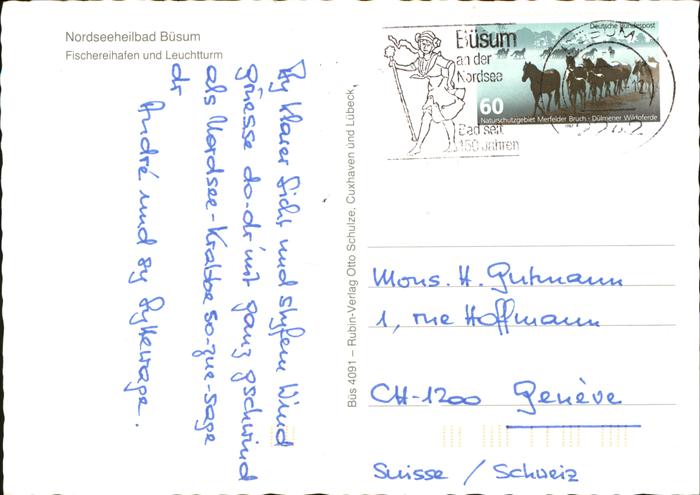 Nordseeheilbad Büsum
Fischereihafen und Leuchtturm
By klarer Sicht und styfem Wind
grüesse do-dr mit ganz gschwind
als Nordsee-Krabbe so-zue-sage
dr
André und sy Syttewage.
Büs 4091 – Rubin-Verlag Otto Schulze, Cuxhaven und Lübeck
Büsum
an der
Nordsee
Bad seit
150 Jahren
Deutsche Bundespost
60
Naturschutzgebiet Merfelder Bruch · Dülmener Wildpferde
BÜSUM
2242
Mons. H. Gutmann
1, rue Hoffmann
CH-1200 Genève
Suisse / Schweiz